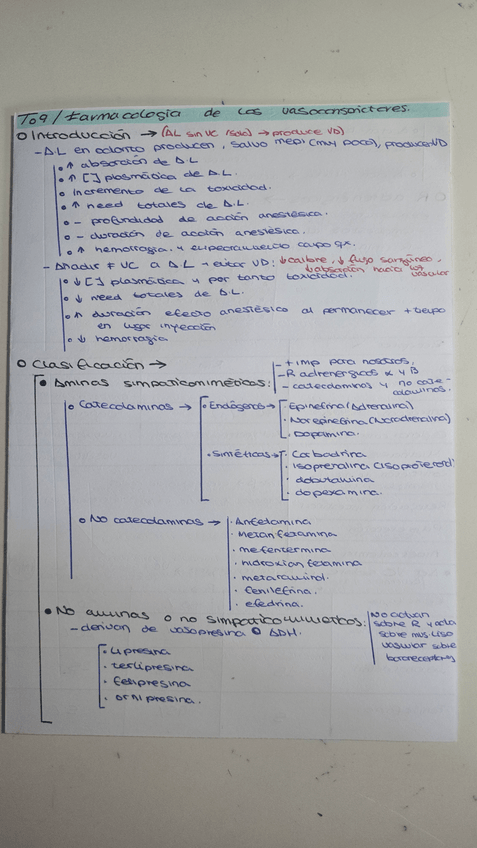 To9/ Farmacología de los vasoconstrictores.
Introducción → (AL sin VC /solo) → produce VD)
- A.L en aclorito producen, salvo mepi (muy poco), produce VD
• ↑ absorción de A.L
• ↑ [ ] plasmática de A.L.
• incremento de la toxicidad.
• ↑ need totales de A.L.
• - profundidad de acción anestésica.
• - duración de acción anestésico.
• ↑ hemorragia. y campo qx.
- Añadir F VC a A.L → evitar VD: ↓ calibre, ↓ flujo sanguíneo,
↓ absorción hacia los
vascular
• ↓ [ ] plasmática y por tanto toxicidad.
• ↓ need totales de A.L.
• ↑ duración efecto anestésico al permanecer + tiempo
en lugar inyección
• ↓ hemorragia
Clasificación →
- + imp para nosotros,
- R adrenergicos α y β
- catecolaminas y no cate-
colaminas.
• Aminas simpaticomiméticas:
• Catecolaminas →
• Endógenas →
· Epinefrina (Adrenalina)
· Norepinefrina (Noradrenalina)
· Dopamina.
• Sintéticas →
· Corbadrina
· Isoprenalina (Isoproterenol)
· dobutamina
· dopexamina.
• No catecolaminas →
· Anfetamina
· Metanfetamina
· mefentermina
· hidroxianfetamina
· metaraminol.
· fenilefrina.
· efedrina.
• No aminas o no simpaticomiméticos:
- derivan de vasopresina o ADH.
No actúan
sobre R y acta
sobre mus. liso
vascular sobre
baroreceptores
· Lipresina
· terlipresina
· felipresina
· ornipresina.